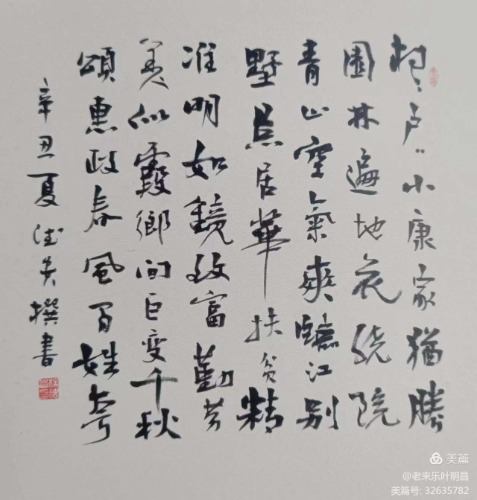 村〻户〻小康家猶勝
園林遍地花绕院
青山空氣爽臨江别
墅民居華扶贫精
准明如鏡致富勤劳
美似霞鄉间巨变千秋
頌惠政春風百姓夸
辛丑夏德撰書
美篇
@老来乐叶明昌
美篇号: 32635782